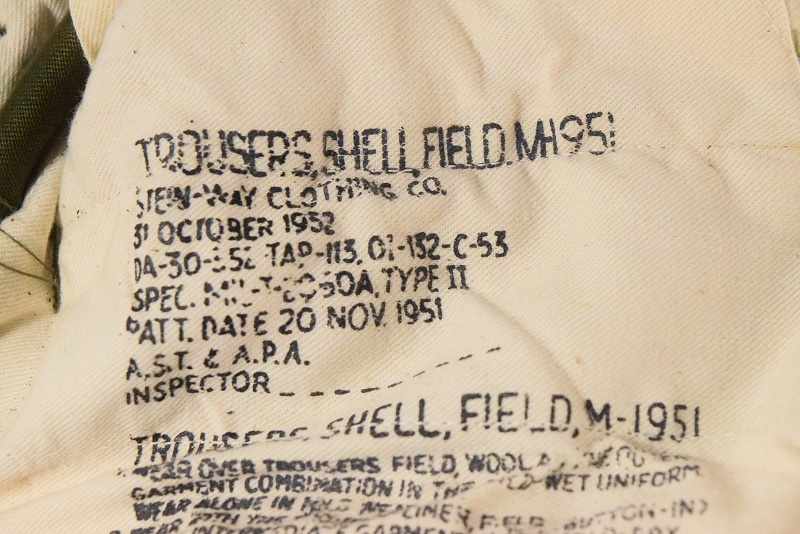 TROUSERS, SHELL, FIELD, M-1951
STEIN-WAY CLOTHING CO.
31 OCTOBER 1952
TAP-113, 01-132-C-53
SPEC. TYPE II
PATT. DATE 20 NOV. 1951
A.S.T. & A.P.A.
INSPECTOR
TROUSERS SHELL, FIELD, M-1951
WEAR OVER TROUSERS, FIELD, WOOL
GARMENT COMBINATION IN THE COLD-WET UNIFORM
WEAR ALONE IN FIELD, BUTTON-IN